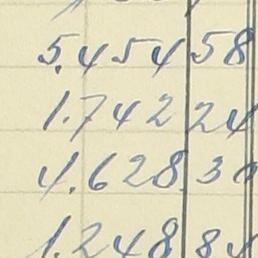 5.454 58
1.742 24
4.628 30
1.248 84